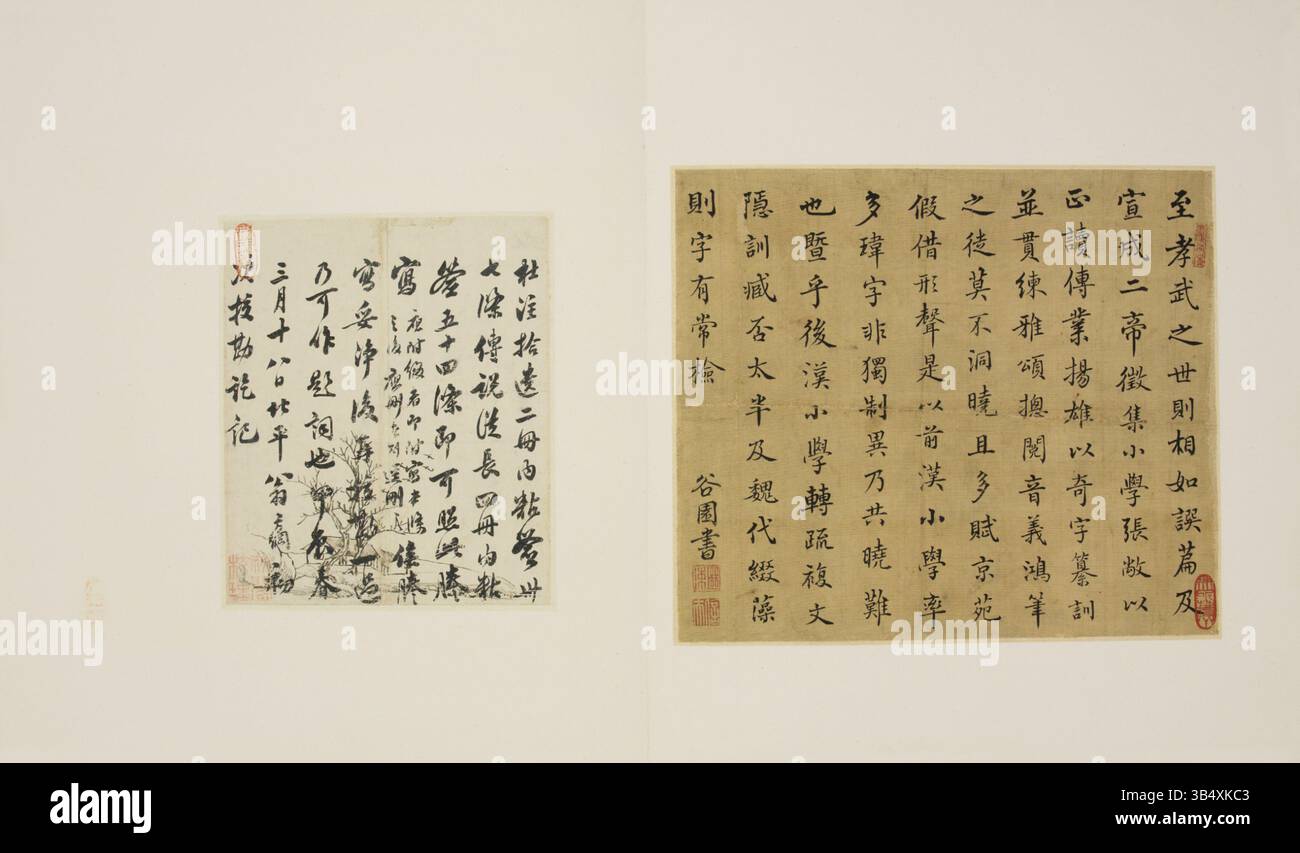 至孝武之世則相如譔篇及
宣成二帝徵集小學張敞以
正讀傳業揚雄以奇字纂訓
並貫練雅頌摠閱音義鴻筆
之徒莫不洞曉且多賦京苑
假借形聲是以前漢小學率
多瑋字非獨制異乃共曉難
也暨乎後漢小學轉疏複文
隱訓臧否太半及魏代綴藻
則字有常檢
谷園書
杜注拾遺二冊內粘簽卅
七條傳說從長四冊內粘
簽五十四條即可照此謄
寫
者即附寫本條
之後應刪者
俟謄
寫妥淨後再校勘一過
乃可作題詞也甲辰春
三月十八日北平翁方綱初
次校勘訖記
alamy
Image ID: 3B4XKC3
www.alamy.com